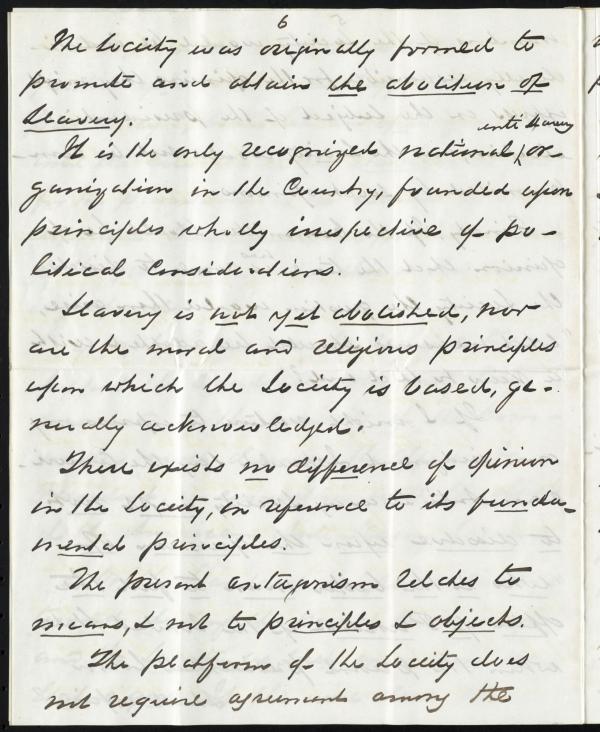 6
The Society was originally formed to
promote and obtain the abolition of
Slavery.
anti slavery
It is the only recognized national or-
ganization in the Country, founded upon
principles wholly irrespective of po-
litical considerations.
Slavery is not yet abolished, nor
are the moral and religious principles
upon which the Society is based, ge-
nerally acknowledged.
There exists no difference of opinion
in the Society, in reference to its funda-
mental principles.
The present antagonism relates to
means, & not to principles & objects.
The platform of the Society does
not require agreement among the